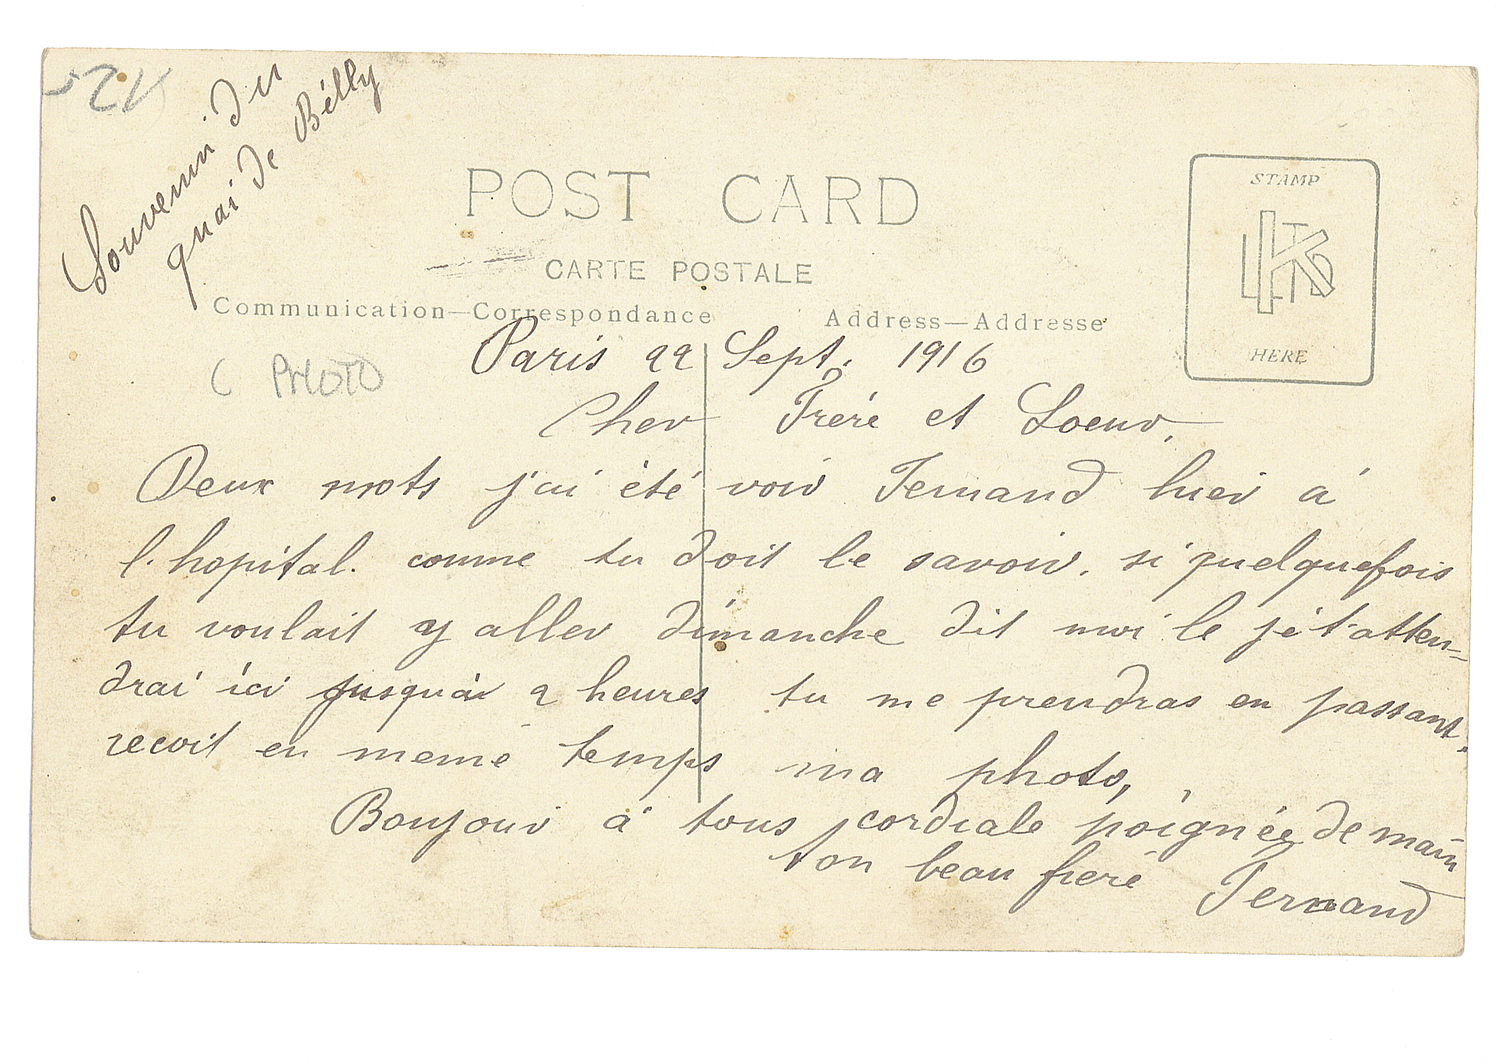 Souvenir du
quai de Bélly
POST CARD
CARTE POSTALE
Communication—Correspondance
Address—Addresse
STAMP
K LTD
HERE
C PHOTO
Paris 22 Sept. 1916
Cher Frère et Soeur,
Deux mots j'ai été voir Fernand hier à
l'hopital. comme tu doit le savoir. si quelquefois
tu voulait y aller dimanche dit moi le je t'atten-
drai ici jusqu'à 2 heures tu me prendras en passant.
recoit en meme temps ma photo,
Bonjour à tous, cordiale poignée de main
ton beau frere Fernand